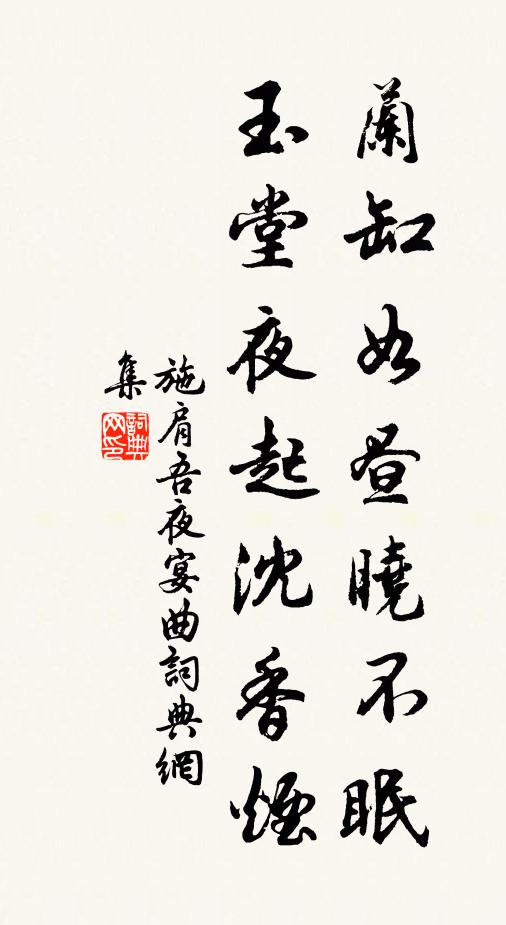 蘭缸如晝曉不眠
玉堂夜起沈香煙
施肩吾夜宴曲詞典網
集
詞典网印